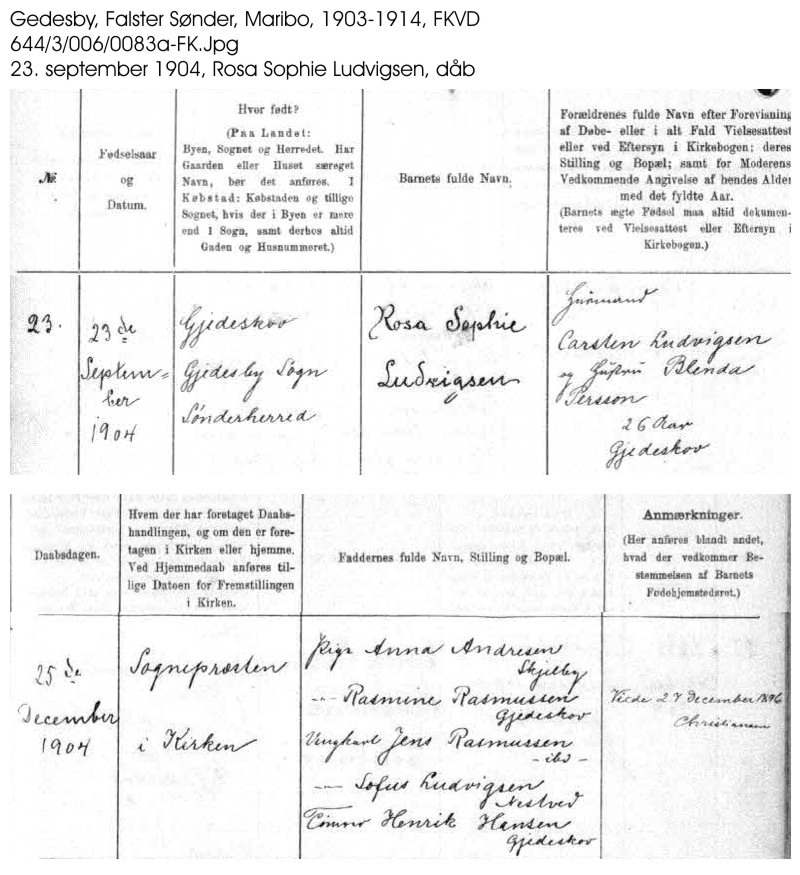 Gedesby, Falster Sønder, Maribo, 1903-1914, FKVD
644/3/006/0083a-FK.Jpg
23. september 1904, Rosa Sophie Ludvigsen, dåb
№
Fødselsaar
og
Datum.
Hvor født?
(Paa Landet:
Byen, Sognet og Herredet. Har
Gaarden eller Huset særeget
Navn, bør det anføres. I
Købstad: Købstaden og tillige
Sognet, hvis der i Byen er mere
end 1 Sogn, samt derhos altid
Gaden og Husnummeret.)
Barnets fulde Navn.
Forældrenes fulde Navn efter Forevisning
af Døbe- eller i alt Fald Vielsesattest
eller ved Eftersyn i Kirkebogen; deres
Stilling og Bopæl; samt for Moderens
Vedkommende Angivelse af hendes Alder
med det fyldte Aar.
(Barnets ægte Fødsel maa altid dokumen-
teres ved Vielsesattest eller Eftersyn i
Kirkebogen.)
23.
23 de
Septem=
ber
1904
Gjedeskov
Gjedesby Sogn
Sønderherred
Rosa Sophie
Ludvigsen
Husmand
Carsten Ludvigsen
og Hustru Blenda
Persson
26 Aar
Gjedeskov
Daabsdagen.
Hvem der har foretaget Daabs-
handlingen, og om den er fore-
tagen i Kirken eller hjemme.
Ved Hjemmedaab anføres til-
lige Datoen for Fremstillingen
i Kirken.
Faddernes fulde Navn, Stilling og Bopæl.
Anmærkninger.
(Her anføres blandt andet,
hvad der vedkommer Be-
stemmelsen af Barnets
Fødehjemstedsret.)
25 de
December
1904
Sognepræsten
i Kirken
Pige Anna Andresen
Skjelby
— Rasmine Rasmussen
Gjedeskov
Ungkarl Jens Rasmussen
- ibd -
— Sofus Ludvigsen
Nestved
Tømrer Henrik Hansen
Gjedeskov
Viede 27 December 1896